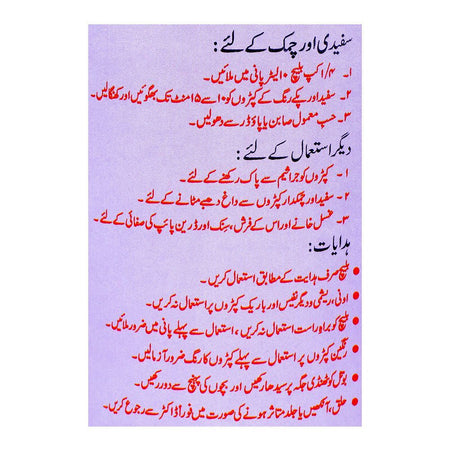 سفیدی اور چمک کے لئے :
۱۔ ۱/۴ کپ بلیچ ۱۰ لیٹر پانی میں ملائیں۔
۲۔ سفید اور پکے رنگ کے کپڑوں کو ۱۰ سے ۱۵ منٹ تک بھگوئیں اور کھنگالیں۔
۳۔ حسب معمول صابن یا پاؤڈر سے دھولیں۔
دیگر استعمال کے لئے :
۱۔ کپڑوں کو جراثیم سے پاک رکھنے کے لئے۔
۲۔ سفید اور چمکدار کپڑوں سے داغ دھبے مٹانے کے لئے۔
۳۔ غسل خانے اور اس کے فرش، سنک اور ڈرین پائپ کی صفائی کے لئے۔
ہدایات :
• بلیچ صرف ہدایت کے مطابق استعمال کریں۔
• اونی، ریشمی و دیگر نفیس اور باریک کپڑوں پر استعمال نہ کریں۔
• بلیچ کو براہ راست استعمال نہ کریں، استعمال سے پہلے پانی میں ضرور ملائیں۔
• رنگین کپڑوں پر استعمال سے پہلے کپڑوں کا رنگ ضرور آزمالیں۔
• بوتل کو ٹھنڈی جگہ پر سیدھا رکھیں اور بچوں کی پہنچ سے دور رکھیں۔
• حلق، آنکھیں یا جلد متاثر ہونے کی صورت میں فوراً ڈاکٹر سے رجوع کریں۔